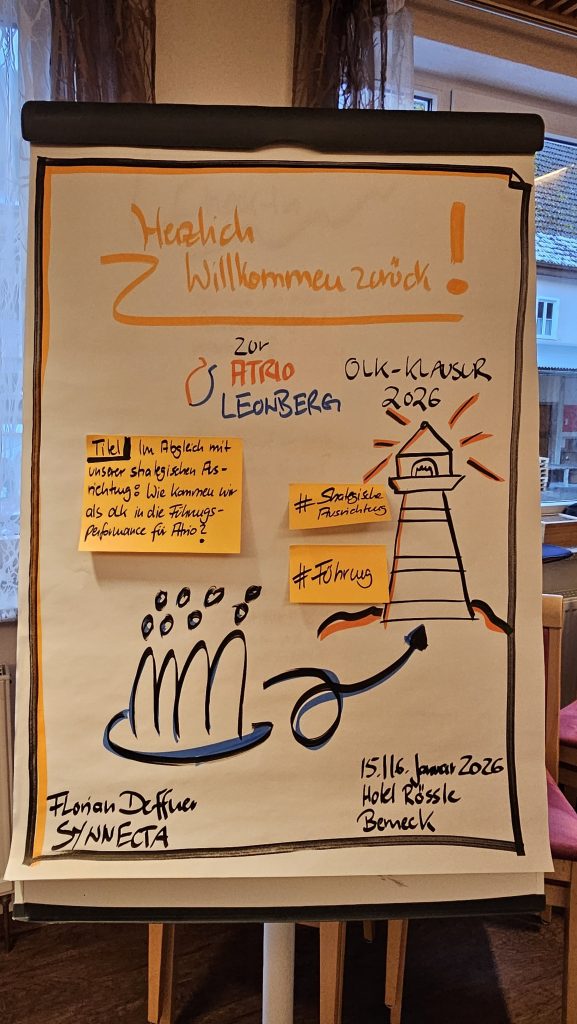 Herzlich
Willkommen zurück!
zur
ATRIO
LEONBERG
OLK-KLAUSUR
2026
Titel: Im Abgleich mit
unserer strategischen Aus-
richtung: Wie kommen wir
als OLK in die Führungs-
performance für Atrio?
#Strategische
Ausrichtung
#Führung
15./16. Januar 2026
Hotel Rössle
Berneck
Florian Deffner
SYNNECTA